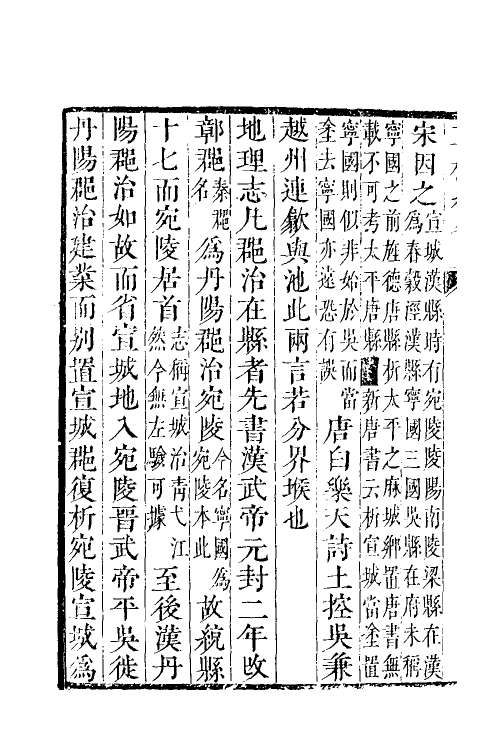 宋因之宣城漢縣時有宛陵陵陽南陵梁縣在漢
為春穀涇漢縣寧國三國吳縣在府未稱
寧國之前旌德唐縣析太平之麻城鄉置唐書無
載不可考太平唐縣 新唐書云析宣城當塗置
寧國則似非始於吳而當
塗去寧國亦遠恐有誤唐白樂天詩土控吳兼
越州連歙與池此兩言若分界堠也
地理志凡郡治在縣者先書漢武帝元封二年改
鄣郡秦郡名為丹陽郡治宛陵今名寧國為宛陵本此故統縣
十七而宛陵居首志稱宣城治青弋江然今無左驗可據至後漢丹
陽郡治如故而省宣城地入宛陵晉武帝平吳徙
丹陽郡治建業而别置宣城郡復析宛陵宣城為